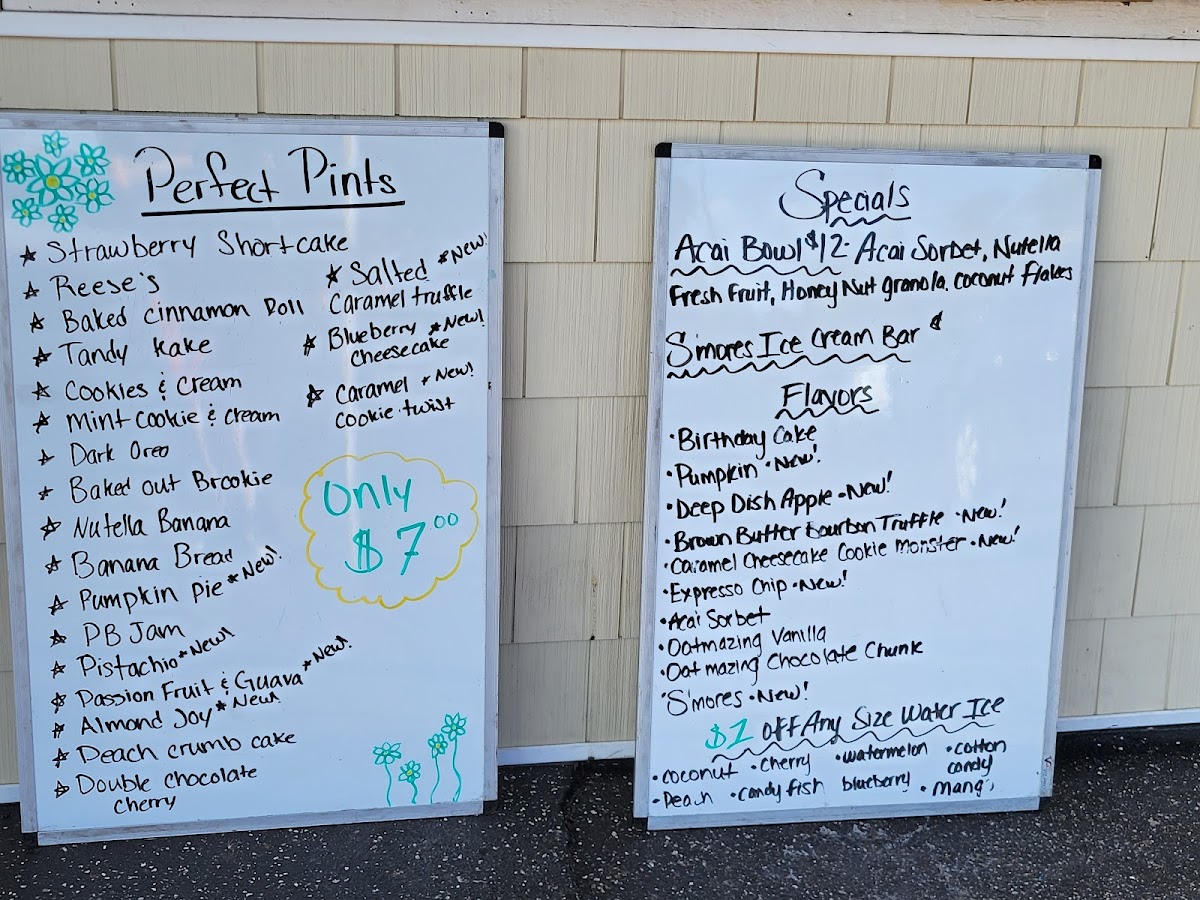 Perfect Pints
Strawberry Shortcake
Reese's
Baked Cinnamon Roll
Tandy Kake
Cookies & Cream
Mint Cookie & Cream
Dark Oreo
Baked out Brookie
Nutella Banana
Banana Bread
Pumpkin Pie *New!
PB Jam
Pistachio *New!
Passion Fruit & Guava *New!
Almond Joy *New!
Peach crumb cake
Double chocolate
cherry
Salted *New!
Caramel truffle
Blueberry *New!
Cheesecake
Caramel *New!
Cookie twist
Only
$7.00
Specials
Acai Bowl $12- Acai Sorbet, Nutella
Fresh Fruit, Honey Nut granola, coconut flakes
S'mores Ice Cream Bar $
Flavors
•Birthday Cake
•Pumpkin •New!
•Deep Dish Apple •New!
•Brown Butter Bourbon Truffle •New!
•Caramel Cheesecake Cookie Monster •New!
•Expresso Chip •New!
•Acai Sorbet
•Oatmazing Vanilla
•Oatmazing Chocolate Chunk
•S'mores •New!
$1 off Any Size Water Ice
•coconut •cherry •watermelon •cotton
candy
•Peach •candy fish blueberry •Mango